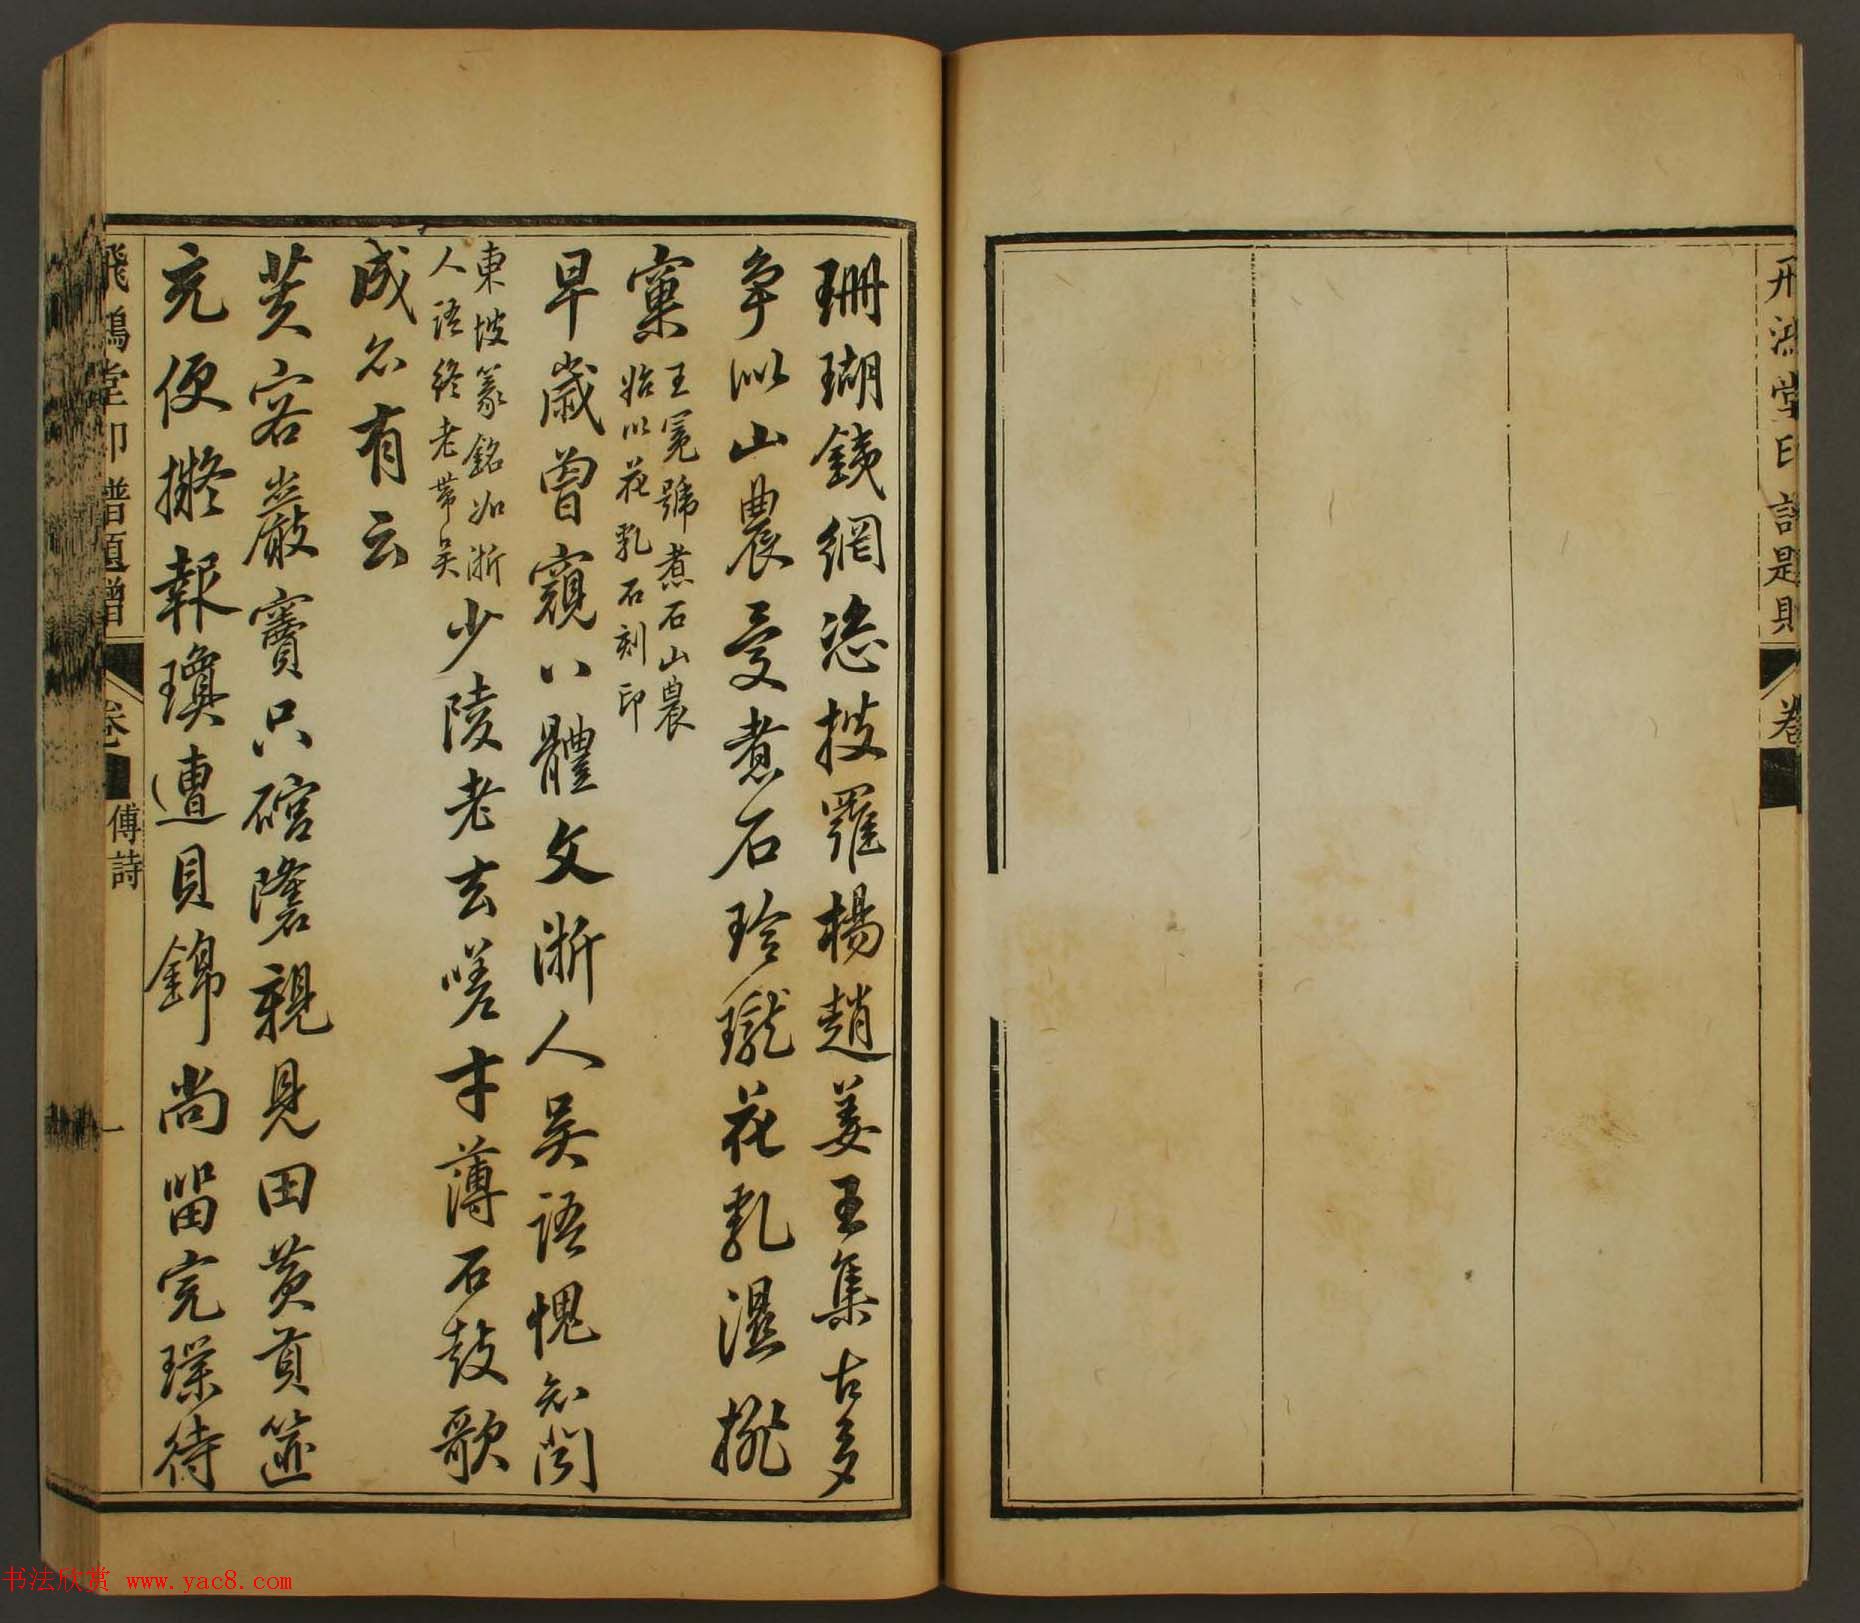 珊瑚鐵網恣披羅楊趙姜王集古多
爭似山農受煮石玲瓏花乳濕挑
窠
王冕號煮石山農
始以花乳石刻印
早歲曾窺八體文浙人吳語愧知聞
東坡篆銘如浙
人語終老帶吳
少陵老去嗟才薄石鼓歌
成不有云
芙容巖竇只碻礲親見田黃貢篚
充便擬報瓊遭貝錦尚留完璞待
飛鴻堂印譜題贈
卷
傅詩
一
飛鴻堂印譜題贈
卷
书法欣赏 www.yac8.com